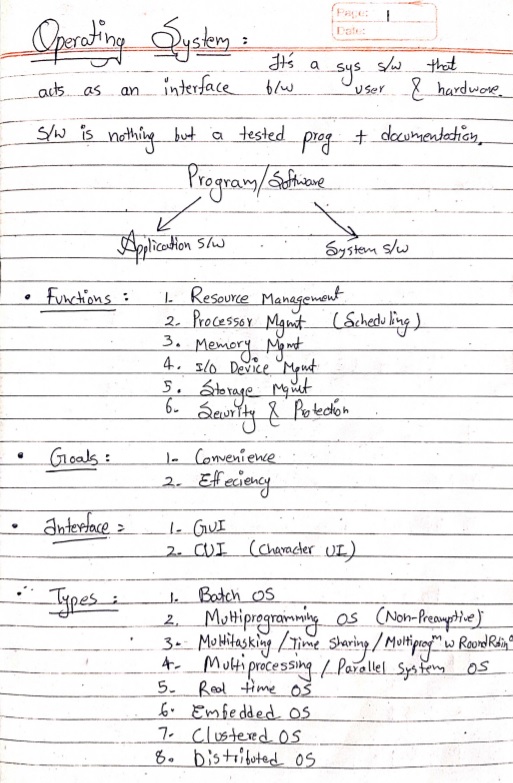 Page: 1
Date:
Operating System :
It's a sys s/w that
acts as an interface b/w user & hardware.
S/W is nothing but a tested prog + documentation.
Program/Software
Application S/W System S/W
• Functions : 1- Resource Management
2- Processor Mgmt (Scheduling)
3. Memory Mgmt
4. I/O Device Mgmt
5. Storage Mgmt
6- Security & Protection
• Goals : 1- Convenience
2. Effeciency
• Interface = 1- GUI
2- CUI (Character UI)
• Types : 1. Batch OS
2. Multiprogramming OS (Non-Preamptive)
3- Multitasking / Time Sharing / Multiprogᵐ w Round
4- Multiprocessing / Parallel System OS
5- Real time OS
6. Embedded OS
7- Clustered OS
8. Distributed OS